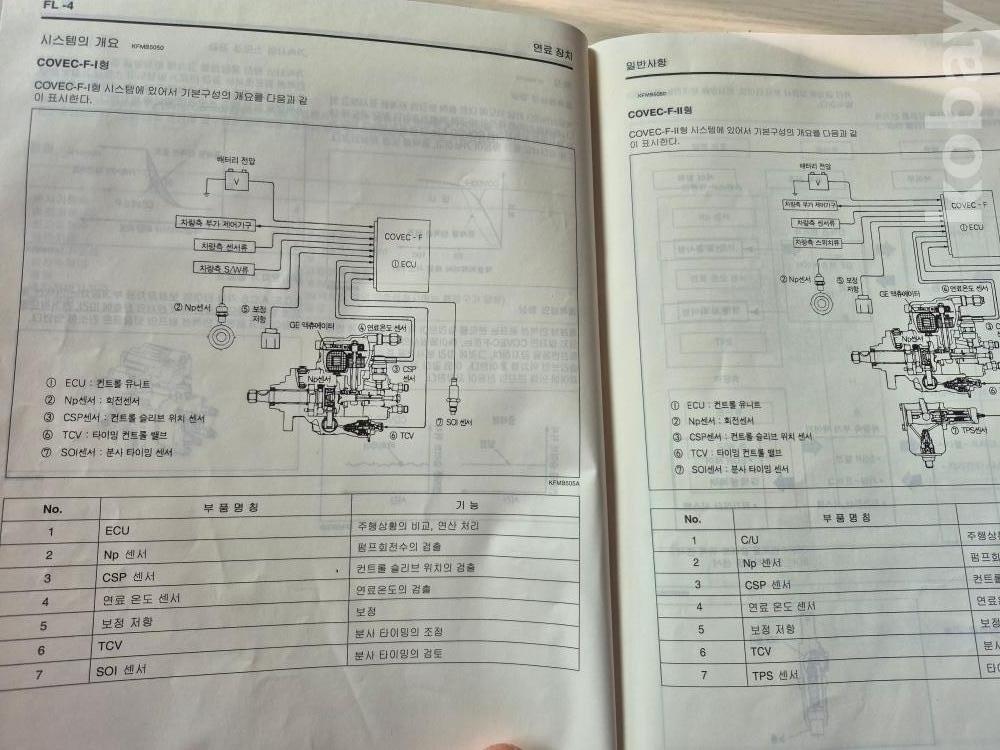 FL -4
연료 장치
시스템의 개요 KFMB5050
COVEC-F-I형
COVEC-F-I형 시스템에 있어서 기본구성의 개요를 다음과 같
이 표시한다.
배터리 전압
V
차량측 부가 제어기구
차량측 센서류
차량측 S/W류
COVEC - F
① ECU
② Np센서
⑤ 보정
저항
GE 액츄에이터
④ 연료온도 센서
Np센서
③ CSP
센서
⑥ TCV
⑦ SOI 센서
① ECU : 컨트롤 유니트
② Np센서 : 회전센서
③ CSP센서 : 컨트롤 슬리브 위치 센서
⑥ TCV : 타이밍 컨트롤 밸브
⑦ SOI센서 : 분사 타이밍 센서
KFMB505A
No. 부 품 명 칭 기 능
1 ECU 주행상황의 비교, 연산 처리
2 Np 센서 펌프회전수의 검출
3 CSP 센서 컨트롤 슬리브 위치의 검출
4 연료 온도 센서 연료온도의 검출
5 보정 저항 보정
6 TCV 분사 타이밍의 조정
7 SOI 센서 분사 타이밍의 검토
일반사항
KFMB5060
COVEC-F-II형
COVEC-F-II형 시스템에 있어서 기본구성의 개요를 다음과 같
이 표시한다.
배터리 전압
V
차량측 부가 제어기구
차량측 센서류
차량측 스위치류
COVEC - F
① ECU
② Np센서
⑤ 보정
저항
GE 액츄에이터
④ 연료온도 센서
Np센서
⑦ TPS센서
① ECU : 컨트롤 유니트
② Np센서 : 회전센서
③ CSP센서 : 컨트롤 슬리브 위치 센서
⑥ TCV : 타이밍 컨트롤 밸브
⑦ SOI센서 : 분사 타이밍 센서
No. 부 품 명 칭
1 C/U 주행상
2 Np 센서 펌프
3 CSP 센서 컨트
4 연료 온도 센서 연료
5 보정 저항 보정
6 TCV 분사
7 TPS 센서 타이
kobay